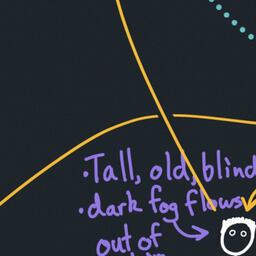 ·Tall, old, blind
·dark fog flows
out of